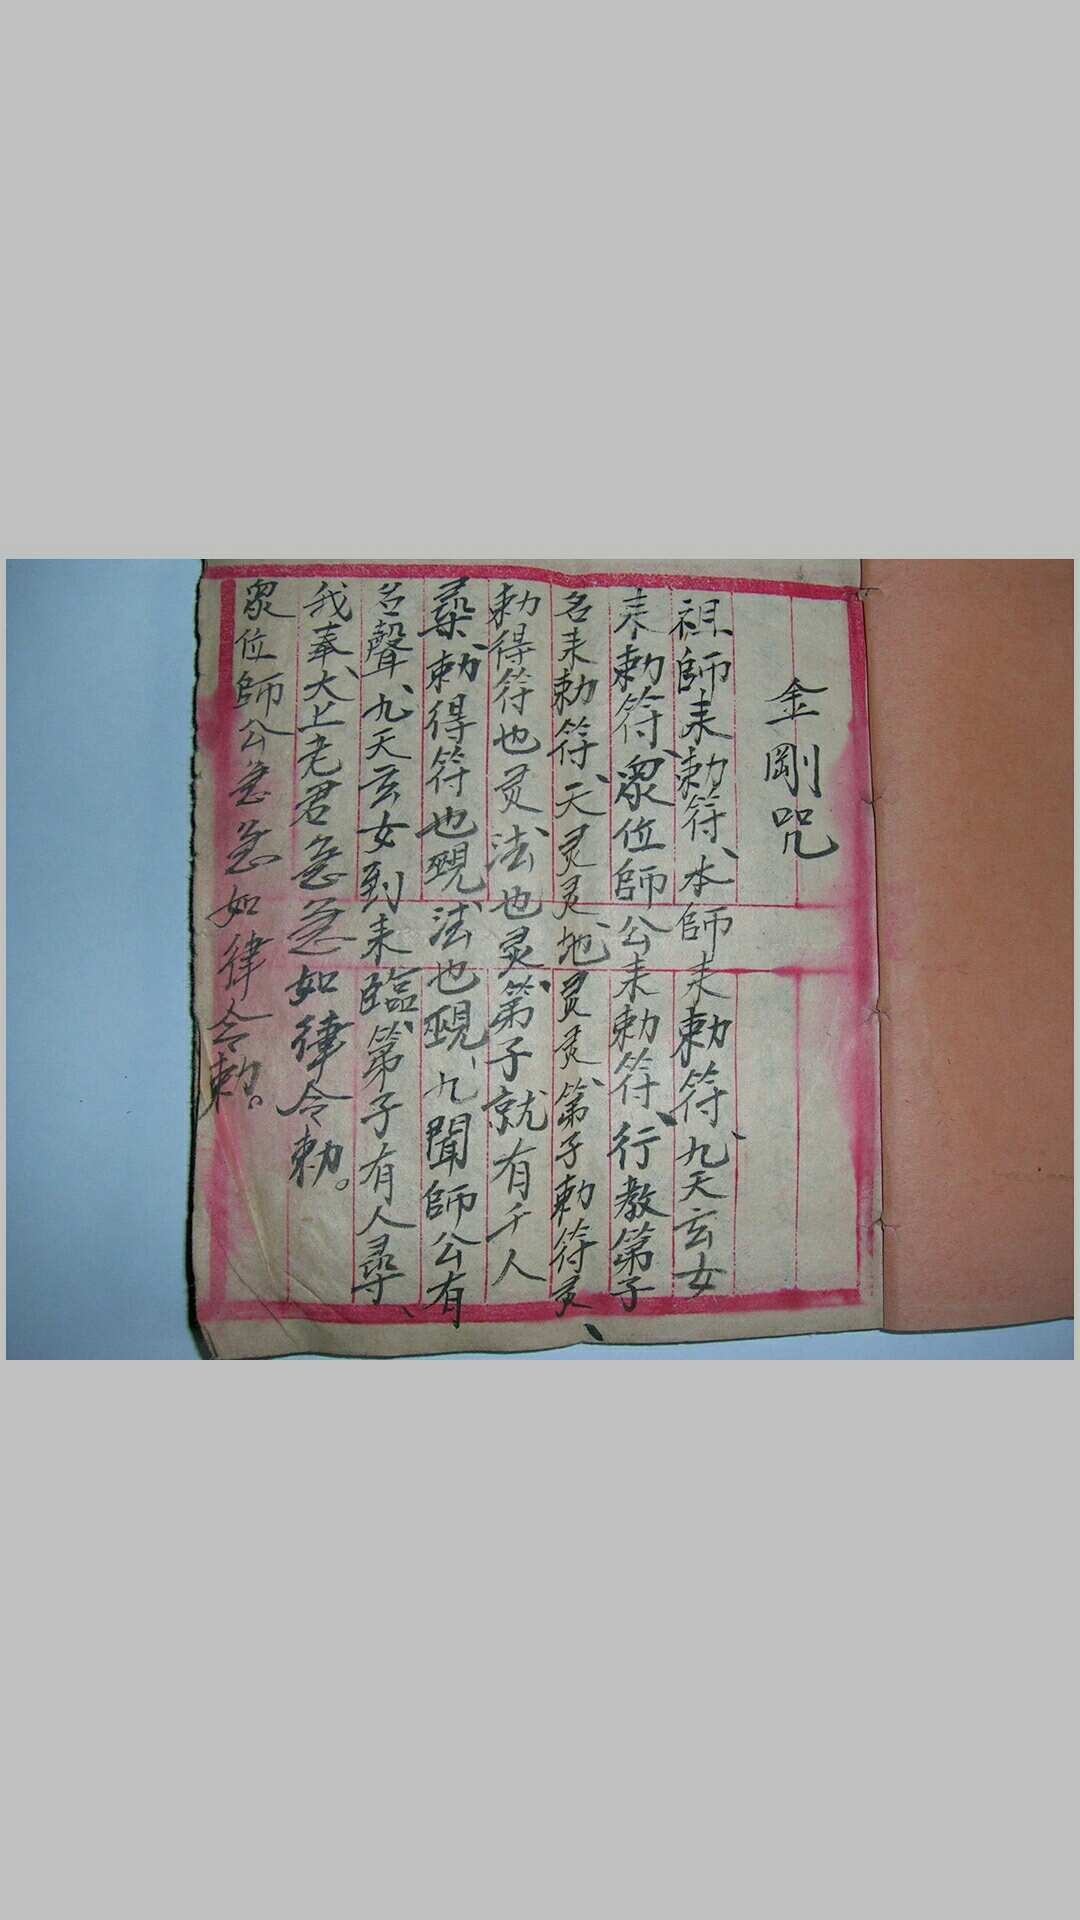 金剛咒
祖師耒勅符、本師耒勅符、九天玄女
耒勅符、眾位師公耒勅符、行教第子
名耒勅符、天灵灵、地灵灵、第子勅符灵、
勅得符也灵、法也灵、第子就有千人
尋、勅得符也現、法也現、九聞師公有
名聲、九天玄女到耒臨、第子有人尋、
我奉、太上老君急急如律令勅。
眾位師公急急如律令勅。